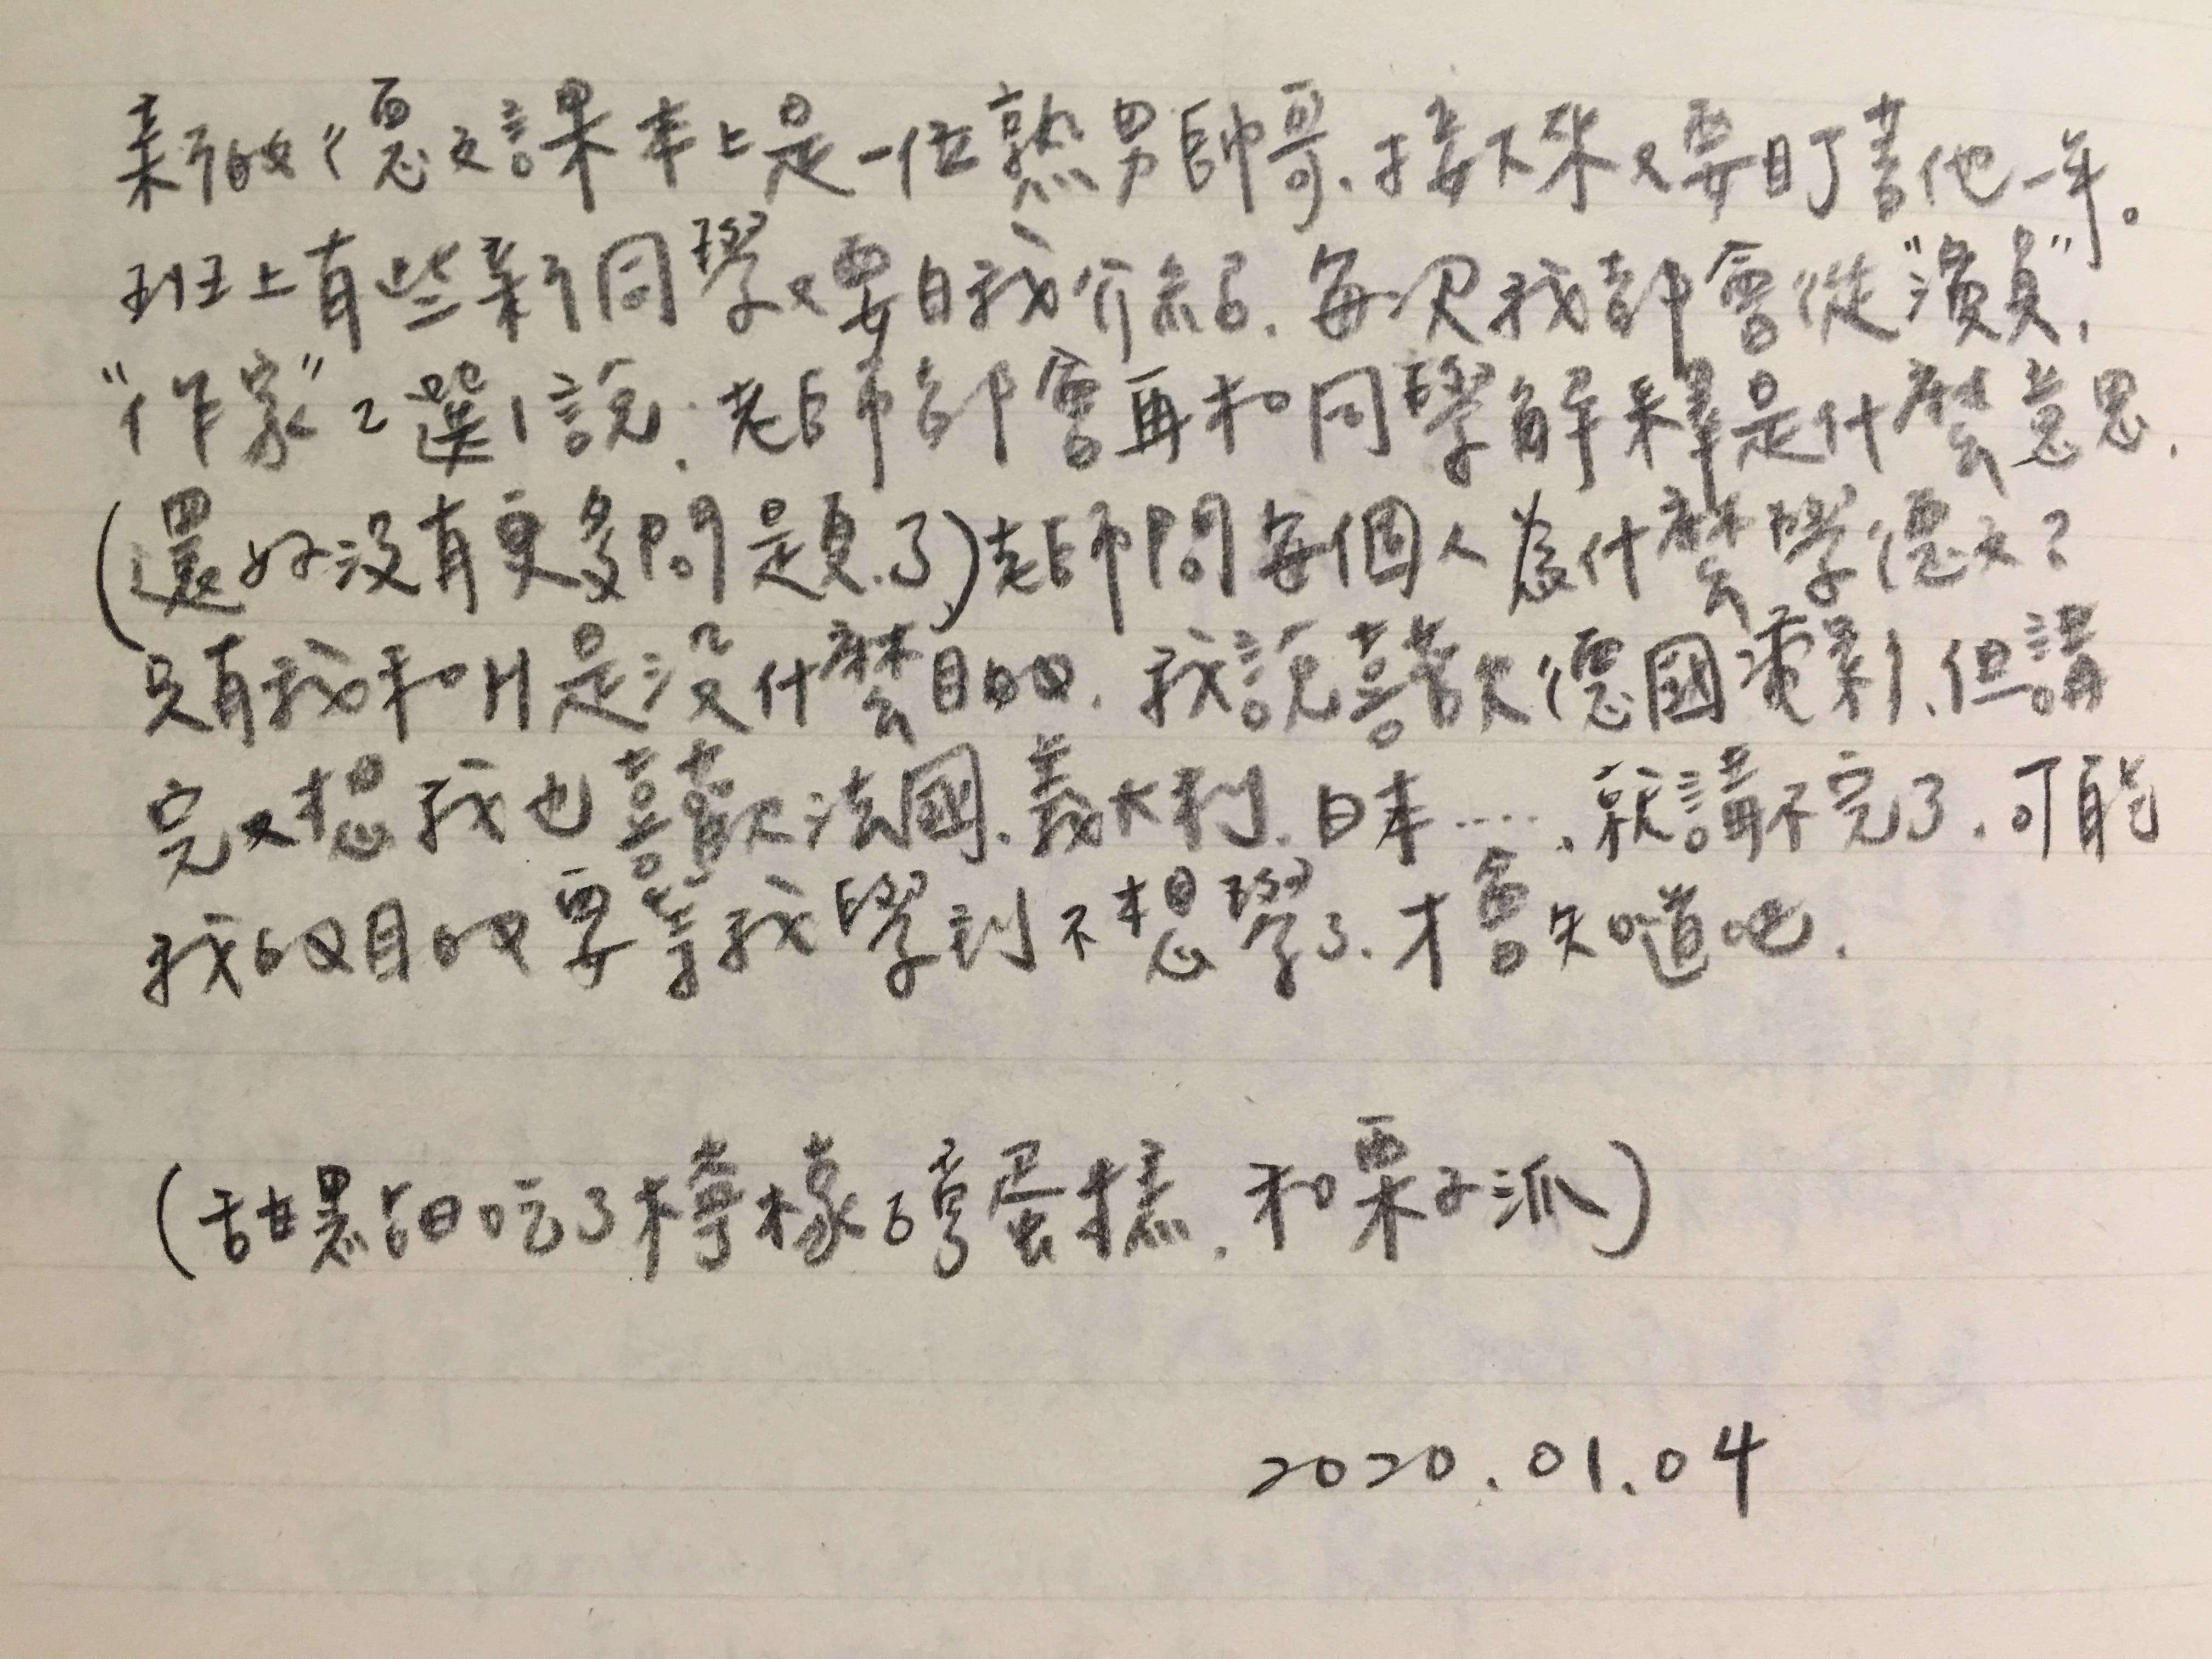 新的德文課本上是一位熟男帥哥、接下來又要盯著他一年。
班上有些新同學又要自我介紹、每次我都會從"演員"、
"作家"2選1說、老師都會再和同學解釋是什麼意思、
(還好沒有更多問題了)老師問每個人為什麼學德文？
只有我和H是沒什麼目的、我說喜歡德國電影、但講
完又想我也喜歡法國、義大利、日本……、就講不完了、可能
我的目的要等我學到不想學了、才會知道吧、
(甜點吃了檸檬彎蛋糕、和栗子派)
2020.01.04